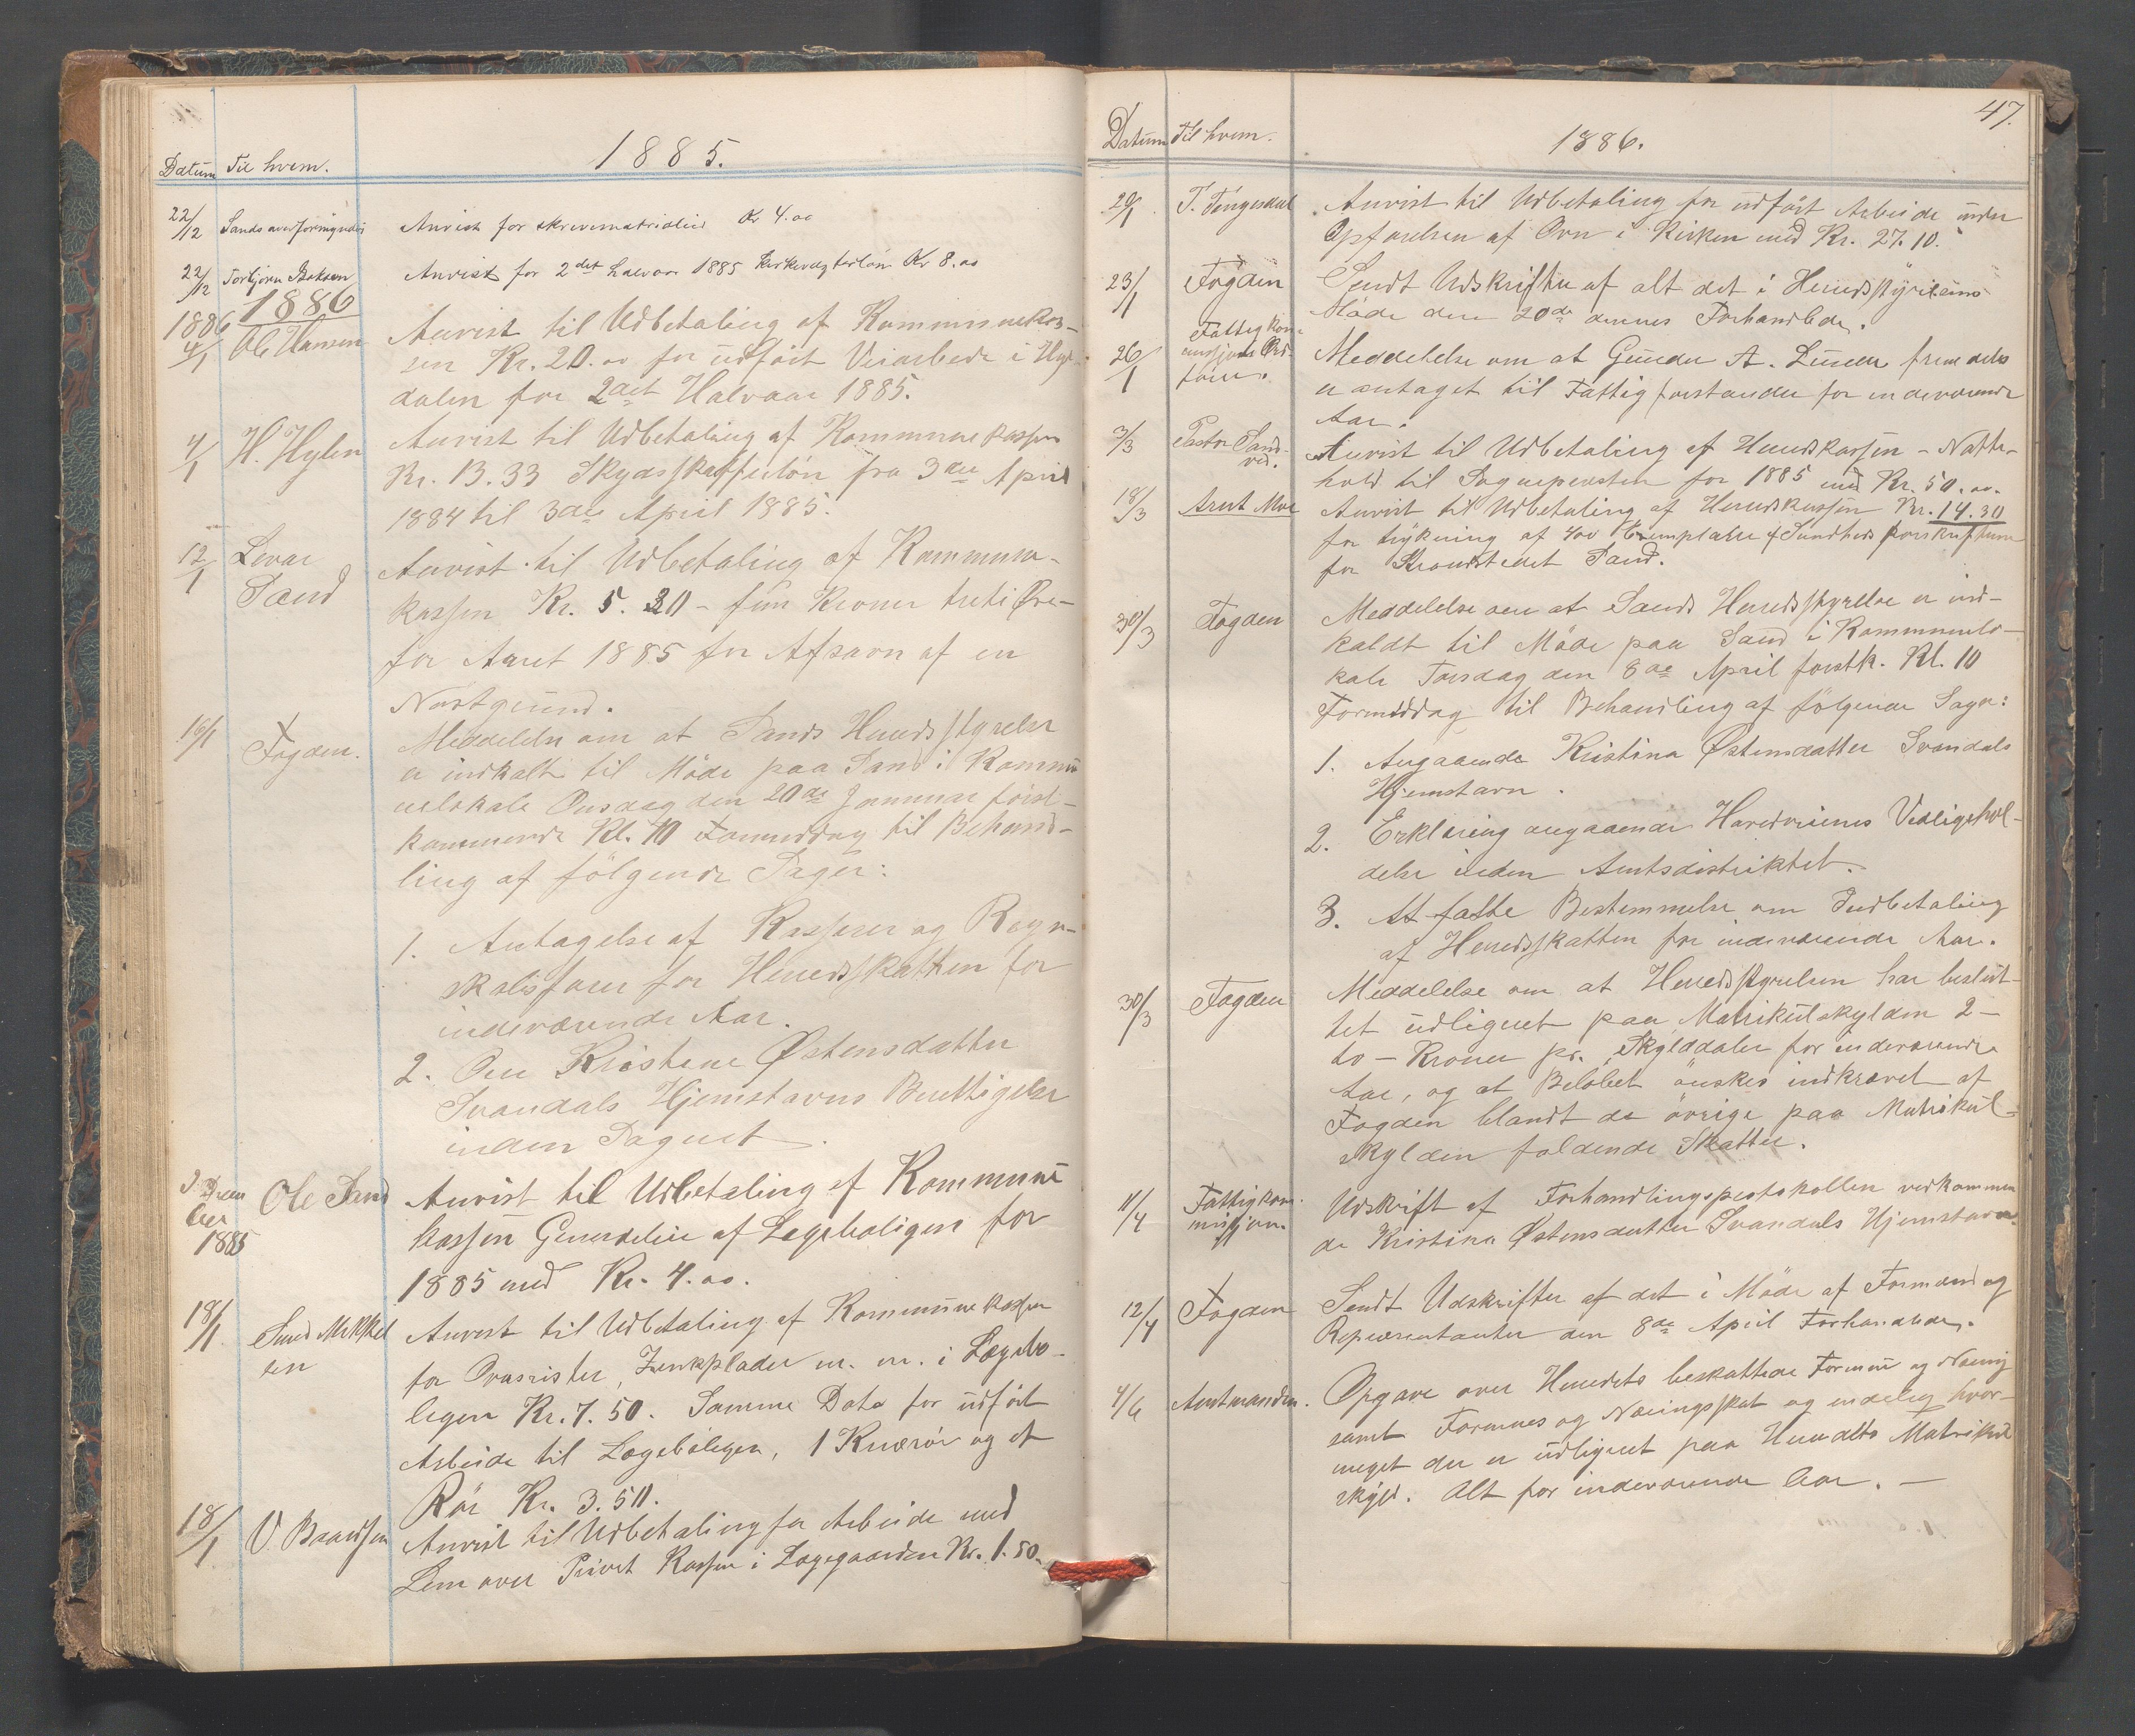 1885.
Datum Til hvem.
22/12 Sands overformynderi Anvist for skrivematrialier Kr 4.00
22/12 Torbjørn Isaksen Anvist for 2det halvaar 1885 kirkevagterløn Kr 8.00
1886
1886 4/1 Ole Hansen Anvist til Udbetaling af Kommunekas-
sen Kr. 20.00 for udført Veiarbeide i Hyl-
dalen for 2det Halvaar 1885.
4/1 H. Hylen Anvist til Udbetaling af Kommunekassen
Kr. 13.33 Skydsskafferløn fra 3die April
1884 til 3die April 1885.
12/1 Levar Sand Anvist til Udbetaling af Kommune-
kassen Kr. 5.30 - fem Kroner treti Øre -
for Aaret 1885 for Afsavn af en
Nøstgrund.
16/1 Fogden. Meddelelse om at Sands Herredsstyrelse
er indkaldt til Møde paa Sand i Kommu
nelokale Onsdag den 20de Januar først-
kommende Kl. 10 Formiddag til Behand-
ling af følgende Sager:
1. Antagelse af Kasserer og Regn-
skabsfører for Herredsskatten for
indeværende Aar.
2. Om Kristine Østensdatter
Svandals Hjemstavns Berettigelse
inden Sognet.
Decem
ber
1885 Ole Sand Anvist til Udbetaling af Kommune
kassen af Lægeboligen for
1885 med Kr. 4.00.
18/1 Mikkel
sen Anvist til Udbetaling af Kommunekassen
for Ovnsrister, Zinkplader m. m. i Lægebo-
ligen Kr. 7.50. Samme Dato for udført
Arbeide til Lægeboligen, 1 Knærør og et
Rør Kr. 3.50.
18/1 O. Baardsen Anvist til Udbetaling for Arbeide med
Lem over Privet Kassen i Lægegaarden Kr. 1.50.
47.
Datum Til hvem.
1886.
20/1 T. Tengesdal Anvist til Udbetaling for udført Arbeide under
Opførelsen af Ovn i Kirken med Kr. 27.10.
23/1 Fogden Sendt Udskrifter af alt det i Herredsstyrelsens
Møde den 20de dennes Forhandlede.
26/1 Fattigkom-
missjons Ord-
fører. Meddelelse om at Gunder A. Lunde fremdeles
er antaget til Fattigforstander for indeværende
Aar.
3/3 Pastor Sand-
ved. Anvist til Udbetaling af Herredskassen - Natte-
hold til Sognepresten for 1885 med Kr. 50.00.
18/3 Arnt Moe Anvist til Udbetaling af Herredskassen Kr. 14.30
for trykning af 400 Exemplarer af Sundheds forskrifterne
for Strandstedet Sand.
30/3 Fogden Meddelelse om at Sands Herredsstyrelse er ind-
kaldt til Møde paa Sand i Kommunelo-
kale Torsdag den 8de April førstk. Kl. 10
Formiddag til Behandling af følgende Sager:
1. Angaaende Kristina Østensdatter Svandals
Hjemstavn.
2. Erklæring angaaende Hovedveienes Vedligehol-
delse inden Amtsdistriktet.
3. At fatte Bestemmelse om Indbetaling
af Herredsskatten for indeværende Aar.
30/3 Fogden Meddelelse om at Herredsstyrelsen har beslut-
tet udlignet paa Matrikulskylden 2 -
to - Kroner pr. Skylddaler for indeværende
Aar, og at Beløbet ønskes indkrævet af
Fogden blandt de øvrige paa Matrikul-
skylden faldende Skatter.
11/4 Fattigkom-
missjon. Udskrift af Forhandlingsprotokollen vedkommen
de Kristina Østensdatter Svandals Hjemstavn.
12/4 Fogden Sendt Udskrifter af det i Møde af Formænd og
Repræsentanter den 8de April Forhandlede.
4/6 Amtmanden. Opgave over Herredets beskattede Formue og Næring
samt Formues og Næringsskat og endelig hvor-
meget der er udlignet paa Herredets Matrikul
skyld. Alt for indeværende Aar. -